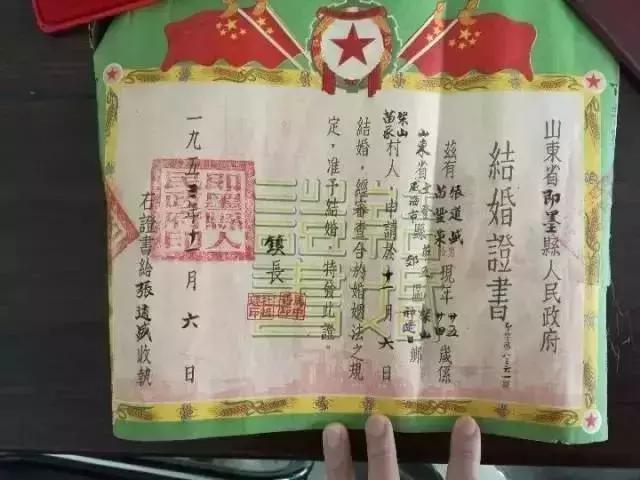 山東省即墨縣人民政府
結婚證書
茲有張道盛 現年廿五歲係
苗豐東 廿四
山東省 縣 區 鄉
梁山
苗家村人申請於十一月六日
結婚，經審查合於婚姻法之規
定，准予結婚，特發此證。
鎮長
一九五三年十一月六日
右證書給張道盛收執
即墨縣人
民政府印
結婚
證書